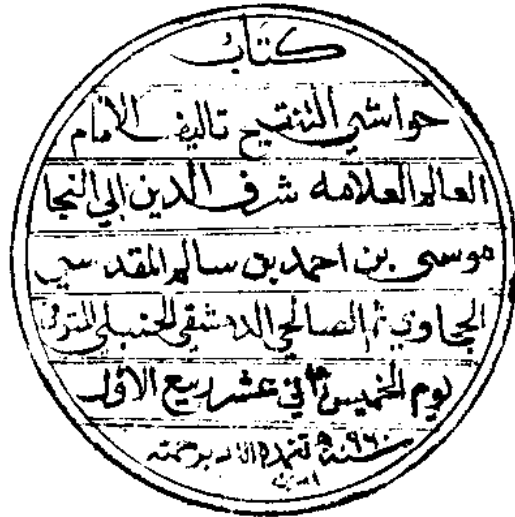 كتاب
حواشي التنقيح تاليف الامام
العالم العلامه شرف الدين ابي النجا
موسى بن احمد بن سالم المقدسي
الحجاوي ثم الصالحي الدمشقي الحنبلي المتوفى
يوم الخميس ثاني عشر ربيع الاول
سنة ٩٦٠ تغمده الله برحمته
امين